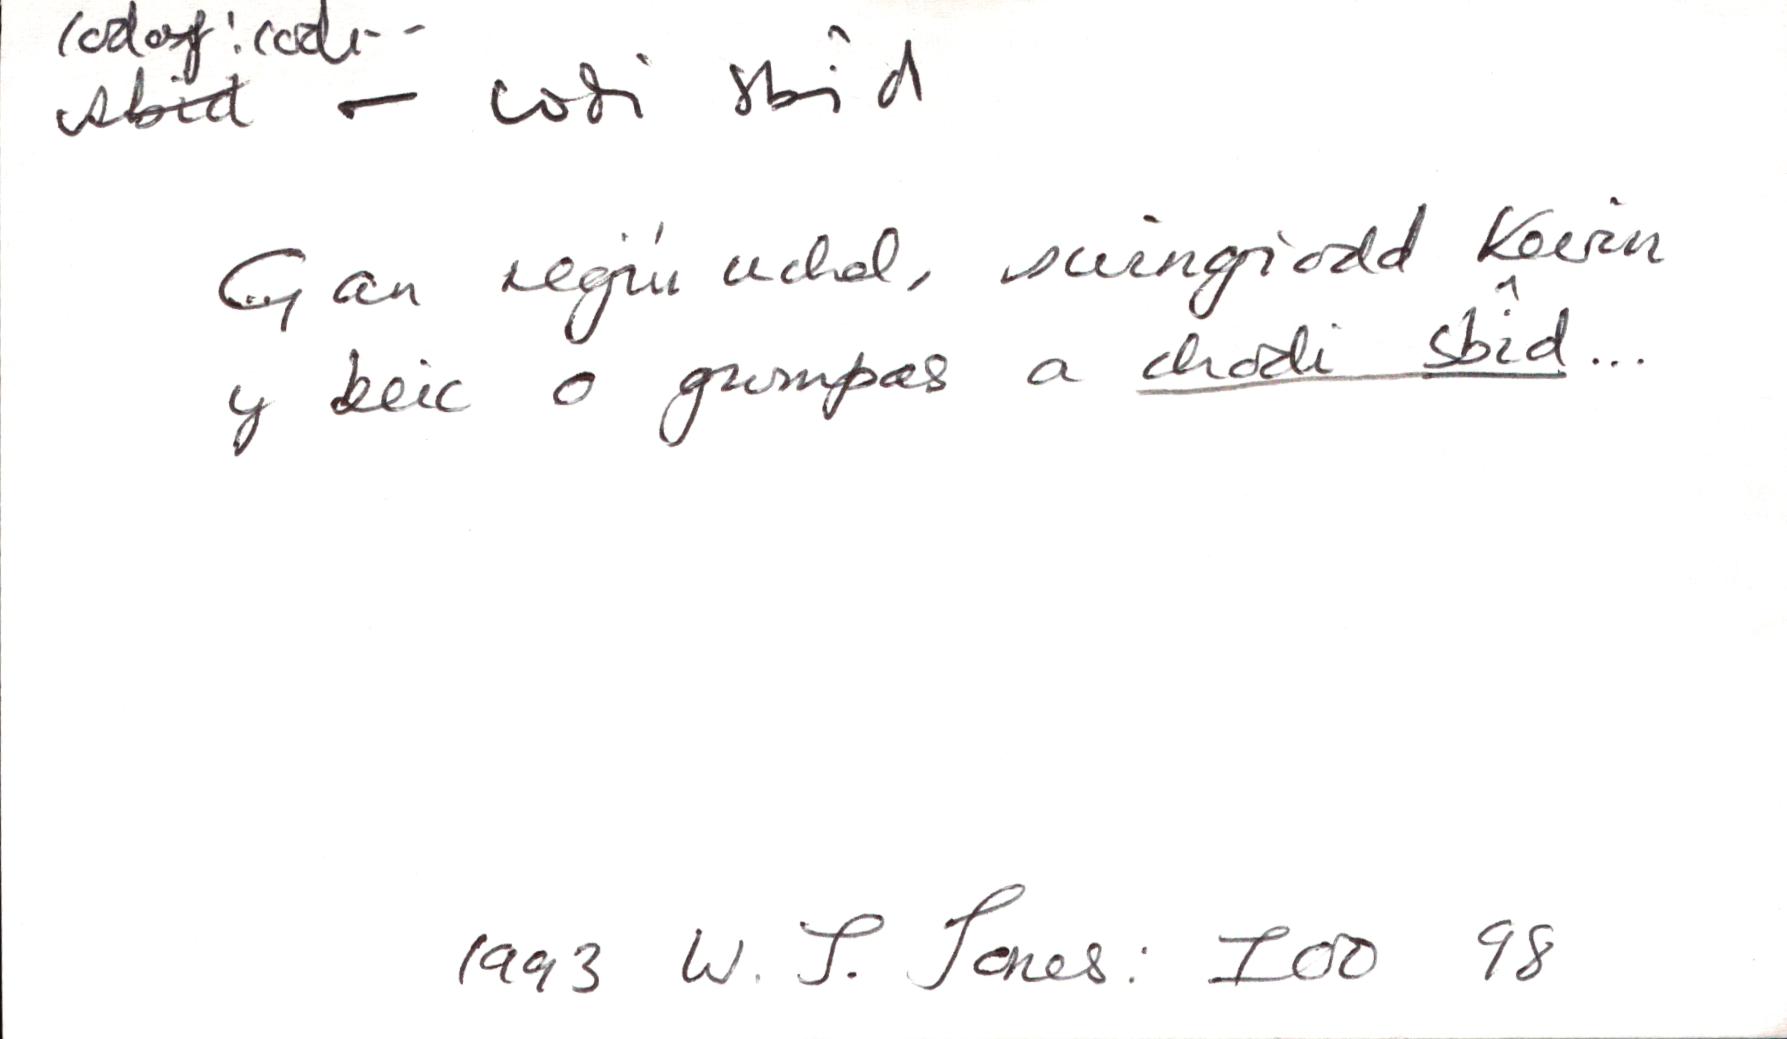 codaf: codi--
sbid — codi sbîd
Gan regi'n uchel, swingiodd Kevin
y beic o gwmpas a chodi sbîd...
1993 W. J. Jones: IOO 98